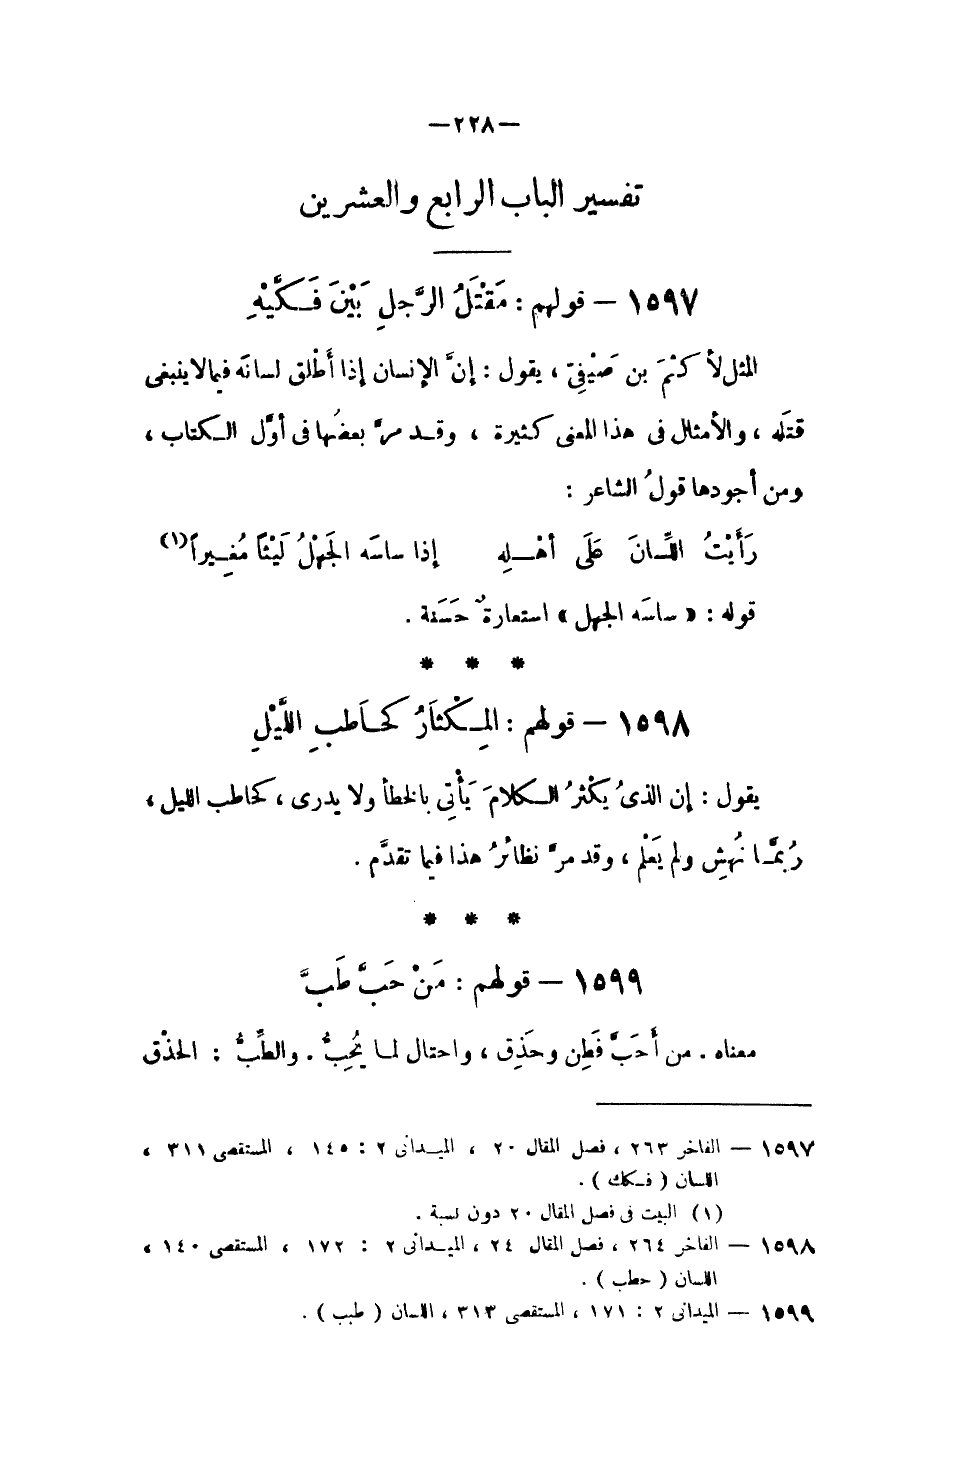 — ٢٢٨ —
تفسير الباب الرابع والعشرين
١٥٩٧ — قولهم : مَقْتَلُ الرَّجلِ بَيْنَ فَكَّيْهِ
المثل لأكْثَمَ بن صَيْفِيّ ، يقول : إنَّ الإنسان إذا أَطْلق لسانَه فيما لا ينبغى
قتلَه ، والأمثال فى هذا المعنى كثيرة ، وقد مرَّ بعضُها فى أوَّل الكتاب ،
ومن أجودها قولُ الشاعر :
رَأَيْتُ اللِّسانَ عَلَى أهْلِه إذا ساسَه الجَهْلُ لَيْثاً مُغِيراً(١)
قوله : « ساسَه الجهل » استعارةٌ حَسَنة .
* * *
١٥٩٨ — قولهم : المِكْثارُ كحَاطبِ اللَّيْلِ
يقول : إن الذىُ يَكْثرُ الكلامَ يَأْتِى بالخطأ ولا يدرى ، كحاطب الليل ،
رُبمَّا نُهِش ولم يَعْلم ، وقد مرَّ نظائرُ هذا فيما تقدَّم .
* * *
١٥٩٩ — قولهم : مَنْ حَبَّ طَبَّ
معناه . من أَحَبَّ فَطِن وحَذِق ، واحتال لما يُحِبُّ . والطِّبُّ : الحذْق
١٥٩٧ — الفاخر ٢٦٣ ، فصل المقال ٢٠ ، الميدانى ٢ : ١٤٥ ، المستقصى ٣١١ ،
اللسان ( فكك ) .
(١) البيت فى فصل المقال ٢٠ دون نسبة .
١٥٩٨ — الفاخر ٢٦٤ ، فصل المقال ٢٤ ، الميدانى ٢ : ١٧٢ ، المستقصى ١٤٠ ،
اللسان ( حطب ) .
١٥٩٩ — الميدانى ٢ : ١٧١ ، المستقصى ٣١٣ ، اللسان ( طبب ) .